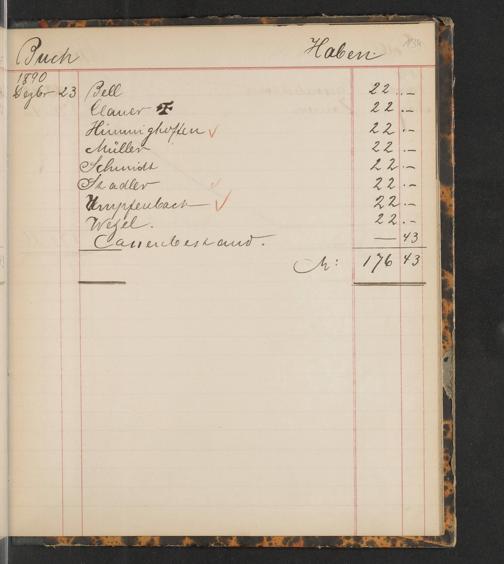 Buch Haben.
1890
Dezbr 23 Bell 22.-
Clauer 22.-
Himmighoffen 22.-
Müller 22.-
Schmidt 22.-
Stadler 22.-
Umpfenbach 22.-
Weßel. 22.-
Cassenbestand. — 43
M: 176 43